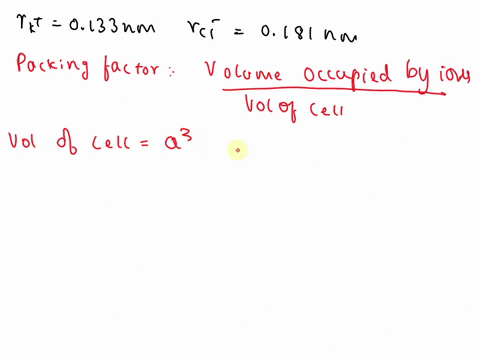 rK+ = 0.133nm rCl- = 0.181 nm
Packing factor: Volume occupied by ions
Vol of cell
Vol of cell = a³